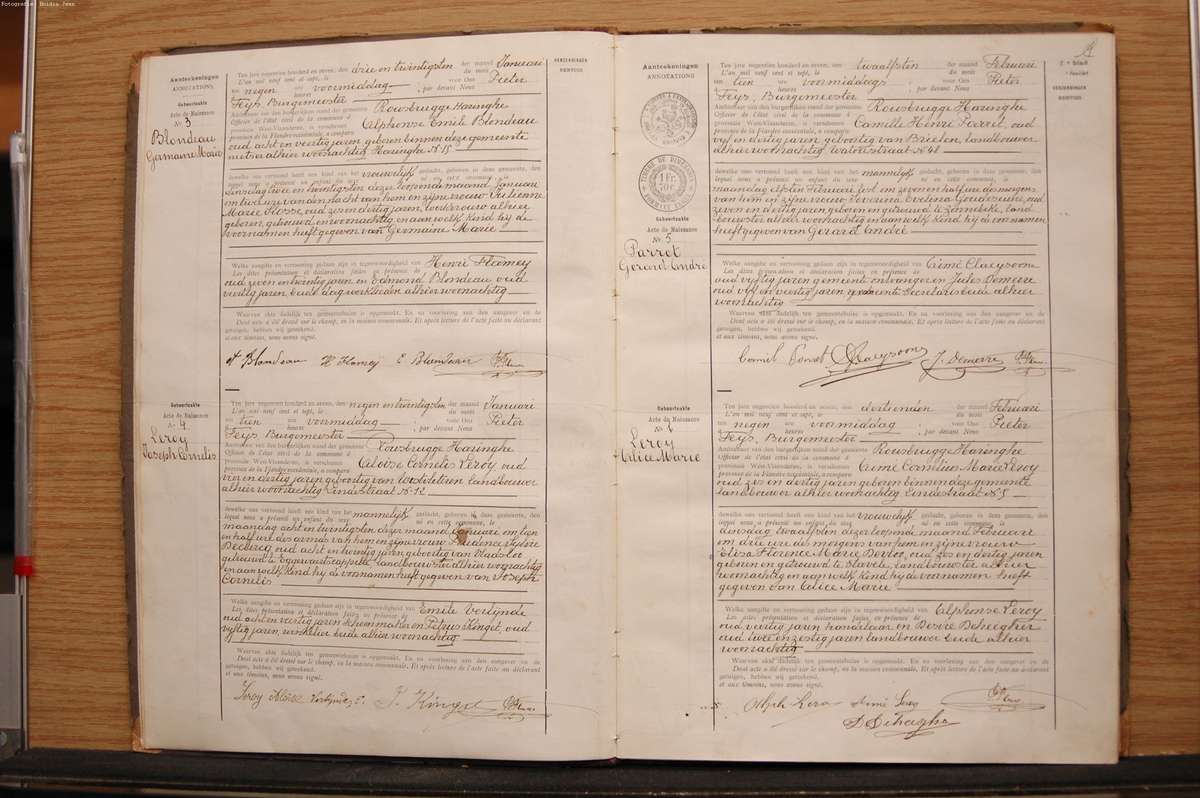 Fotografie: Boidin Jean
Aanteekeningen
ANNOTATIONS
Geboorteakte
Acte de Naissance
Nr 3
Blondeau
Germaine Marie
Ten jare negentien honderd en zeven, den drie en twintigsten der maand Januari
L'an mil neuf cent et sept, le du mois
ten negen ure voormiddag voor Ons Pieter
heure ; par devant Nous
Feys, Burgemeester
Ambtenaar van den burgerlijken stand der gemeente Rousbrugge Haringhe
Officier de l'état civil de la commune d
provincie West-Vlaanderen, is verschenen Alphonse Emile Blondeau
province de la Flandre occidentale, a comparu
oud acht en veertig jaren geboren binnen deze gemeente
metser alhier woonachtig Haringhe Nr 15
dewelke ons vertoond heeft een kind van het vrouwelijk geslacht, geboren in deze gemeente, den
lequel nous a présenté un enfant du sexe né en cette commune, le
dinsdag twee en twintigsten dezer loopende maand Januari
om twee ure van den nacht van hem en zijne vrouw Julienne
Marie Flosse, oud zes en dertig jaren, werkvrouw alhier
geboren, gehuwd en woonachtig en aan welk kind hij de
voornamen heeft gegeven van Germaine Marie
Welke aangifte en vertooning gedaan zijn in tegenwoordigheid van Henri Flamey
Les dites présentation et déclaration faites en présence de
oud zeven en twintig jaren en Edmond Blondeau oud
veertig jaren, beide dagwerklieden alhier woonachtig
Waarvan akte dadelijk ten gemeentehuize is opgemaakt. En na voorlezing aan den aangever en de
Dont acte a été dressé sur le champ, en la maison communale. Et après lecture de l'acte faite au déclarant
getuigen, hebben wij geteekend.
et aux témoins, nous avons signé.
A Blondeau H Flamey E Blondeau P. Feys
Geboorteakte
Acte de Naissance
Nr 4
Leroy
Joseph Cornelis
Ten jare negentien honderd en zeven, den negen en twintigsten der maand Januari
L'an mil neuf cent et sept, le du mois
ten tien ure voormiddag voor Ons Pieter
heures ; par devant Nous
Feys, Burgemeester
Ambtenaar van den burgerlijken stand der gemeente Rousbrugge Haringhe
Officier de l'état civil de la commune d
provincie West-Vlaanderen, is verschenen Aloise Cornelis Leroy oud
province de la Flandre occidentale, a comparu
vier en dertig jaren geboortig van Westvleteren landbouwer
alhier woonachtig Eindestraat Nr 12
dewelke ons vertoond heeft een kind van het mannelijk geslacht, geboren in deze gemeente, den
lequel nous a présenté un enfant du sexe né en cette commune, le
maandag acht en twintigsten dezer maand Januari om tien
en half ure des avonds van hem en zijne vrouw
Declercq oud acht en twintig jaren geboortig van Vladsloo
getrouwd te Eggewaertscappelle landbouwster alhier woonachtig
en aan welk kind hij de voornamen heeft gegeven van Joseph
Cornelis
Welke aangifte en vertooning gedaan zijn in tegenwoordigheid van Emile Verlynde
Les dites présentation et déclaration faites en présence de
oud acht en veertig jaren schoenmaker en Petrus Kinget, oud
vijftig jaren, winkelier beide alhier woonachtig
Waarvan akte dadelijk ten gemeentehuize is opgemaakt. En na voorlezing aan den aangever en de
Dont acte a été dressé sur le champ, en la maison communale. Et après lecture de l'acte faite au déclarant
getuigen, hebben wij geteekend.
et aux témoins, nous avons signé.
Leroy Aloise Verlynde E. P. Kinget P. Feys
Aanteekeningen
ANNOTATIONS
TIMBRE DE DIMENSION
1 Fr.
70 c.
Geboorteakte
Acte de Naissance
Nr 5
Parret
Gerard André
Ten jare negentien honderd en zeven, den twaalfsten der maand Februari
L'an mil neuf cent et sept, le du mois
ten tien ure voormiddags voor Ons Pieter
heures ; par devant Nous
Feys, Burgemeester
Ambtenaar van den burgerlijken stand der gemeente Rousbrugge Haringhe
Officier de l'état civil de la commune d
provincie West-Vlaanderen, is verschenen Camille Henri Parret, oud
province de la Flandre occidentale, a comparu
vijf en dertig jaren geboortig van Brielen, landbouwer
alhier woonachtig Waterstraat Nr 48
dewelke ons vertoond heeft een kind van het mannelijk geslacht, geboren in deze gemeente, den
lequel nous a présenté un enfant du sexe né en cette commune, le
maandag elfsten Februari om zeven en half ure des morgens
van hem en zijne vrouw Severina Evelina Goudeseune, oud
zeven en dertig jaren geboren en getrouwd te Zonnebeke, land
bouwster alhier woonachtig en aan welk kind hij de voornamen
heeft gegeven van Gerard André
Welke aangifte en vertooning gedaan zijn in tegenwoordigheid van Aimé Claeysoone
Les dites présentation et déclaration faites en présence de
oud vijftig jaren gemeente ontvanger en Jules Demerre
oud vijf en veertig jaren gemeente Secretaris beide alhier
woonachtig
Waarvan akte dadelijk ten gemeentehuize is opgemaakt. En na voorlezing aan den aangever en de
Dont acte a été dressé sur le champ, en la maison communale. Et après lecture de l'acte faite au déclarant
getuigen, hebben wij geteekend.
et aux témoins, nous avons signé.
Camiel Parret A Claeysoone J. Demerre P. Feys
Geboorteakte
Acte de Naissance
Nr 6
Leroy
Alice Marie
Ten jare negentien honderd en zeven, den dertienden der maand Februari
L'an mil neuf cent et sept, le du mois
ten negen ure voormiddag voor Ons Pieter
heures ; par devant Nous
Feys, Burgemeester
Ambtenaar van den burgerlijken stand der gemeente Rousbrugge Haringhe
Officier de l'état civil de la commune d
provincie West-Vlaanderen, is verschenen Aimé Cornelius Marie Leroy
province de la Flandre occidentale, a comparu
oud zes en dertig jaren geboren binnen deze gemeente
landbouwer alhier woonachtig Eindestraat Nr 5
dewelke ons vertoond heeft een kind van het vrouwelijk geslacht, geboren in deze gemeente, den
lequel nous a présenté un enfant du sexe né en cette commune, le
dinsdag twaalfsten dezer loopende maand Februari
om drie ure des morgens van hem en zijne vrouw
Elisa Florence Marie Devloo, oud zes en dertig jaren
geboren en getrouwd te Stavele, landbouwster alhier
woonachtig en aan welk kind hij de voornamen heeft
gegeven van Alice Marie
Welke aangifte en vertooning gedaan zijn in tegenwoordigheid van Alphonse Leroy
Les dites présentation et déclaration faites en présence de
oud veertig jaren handelaar en Désiré Dehaeghe
oud twee en zestig jaren landbouwer beide alhier
woonachtig
Waarvan akte dadelijk ten gemeentehuize is opgemaakt. En na voorlezing aan den aangever en de
Dont acte a été dressé sur le champ, en la maison communale. Et après lecture de l'acte faite au déclarant
getuigen, hebben wij geteekend.
et aux témoins, nous avons signé.
Alph Leroy Aimé Leroy P. Feys
D. Dehaeghe